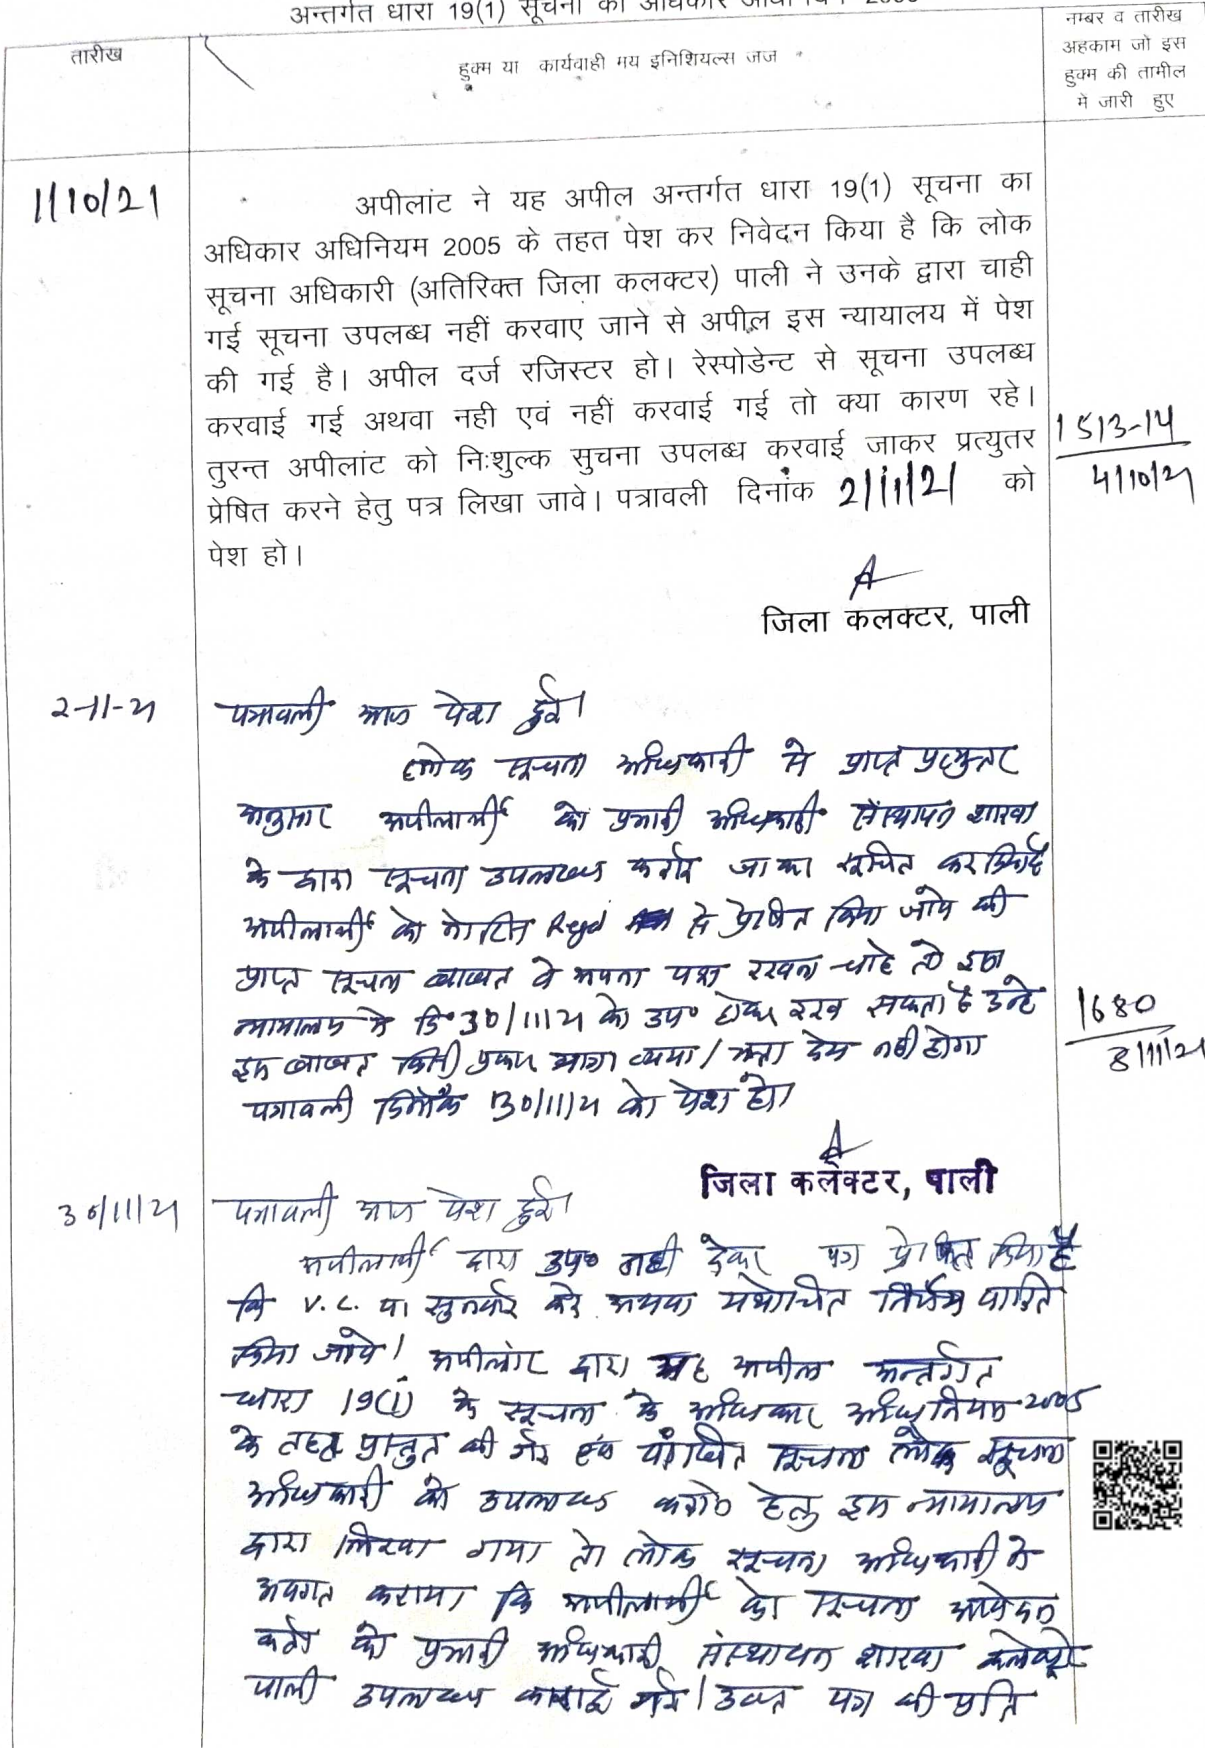 अन्तर्गत धारा 19(1) सूचना का अधिकार
तारीख
हुक्म या कार्यवाही मय इनिशियल्स जज
नम्बर व तारीख
अहकाम जो इस
हुक्म की तामील
मे जारी हुए
1/10/21
अपीलांट ने यह अपील अन्तर्गत धारा 19(1) सूचना का
अधिकार अधिनियम 2005 के तहत पेश कर निवेदन किया है कि लोक
सूचना अधिकारी (अतिरिक्त जिला कलक्टर) पाली ने उनके द्वारा चाही
गई सूचना उपलब्ध नहीं करवाए जाने से अपील इस न्यायालय में पेश
की गई है। अपील दर्ज रजिस्टर हो। रेस्पोडेन्ट से सूचना उपलब्ध
करवाई गई अथवा नही एवं नहीं करवाई गई तो क्या कारण रहे।
तुरन्त अपीलांट को निःशुल्क सुचना उपलब्ध करवाई जाकर प्रत्युतर
प्रेषित करने हेतु पत्र लिखा जावे। पत्रावली दिनांक 2/11/21 को
पेश हो।
1513-14
4/10/21
जिला कलक्टर, पाली
2-11-21
पत्रावली आज पेश हुई।
लोक सूचना अधिकारी से प्राप्त प्रत्युत्तर
अनुसार अपीलार्थी को प्रभारी अधिकारी संस्थापन शाखा
के द्वारा सूचना उपलब्ध कराई जाकर सूचित कर दिया है
अपीलार्थी को नोटिस Regd से प्रेषित किया जावे की
प्राप्त सूचना बाबत वे अपना पक्ष रखना चाहे तो इस
न्यायालय मे दि० 30/11/21 को उप० होकर रख सकता है उन्हे
इस बाबत किसी प्रकार यात्रा व्यय/भत्ता देय नही होगा
पत्रावली दिनांक 30/11/21 को पेश हो।
1680
8/11/21
जिला कलक्टर, पाली
30/11/21
पत्रावली आज पेश हुई।
अपीलार्थी द्वारा उप० नही देकर पत्र प्रेषित किया है
कि V.C. पर सुनवाई करे अथवा यथोचित निर्णय पारित
किया जावे। अपीलांट द्वारा यह अपील अन्तर्गत
धारा 19(1) के सूचना के अधिकार अधिनियम 2005
के तहत प्रस्तुत की गई एवं वांछित सूचना लोक सूचना
अधिकारी को उपलब्ध कराने हेतु इस न्यायालय
द्वारा लिखा गया तो लोक सूचना अधिकारी ने
अवगत कराया कि अपीलार्थी को सूचना आवेदन
को प्रभारी अधिकारी संस्थापन शाखा कलेक्ट्रेट
पाली उपलब्ध करवाई गई। उक्त पत्र की प्रति